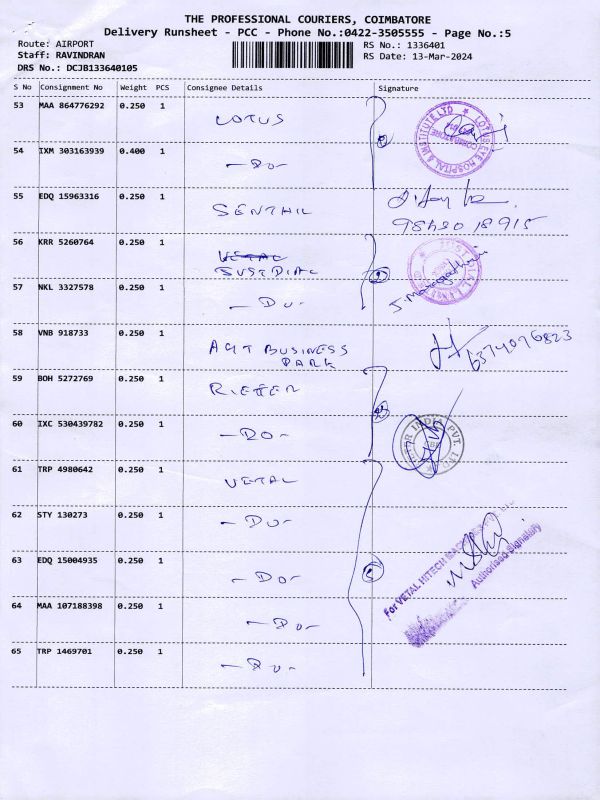 THE PROFESSIONAL COURIERS, COIMBATORE
Delivery Runsheet - PCC - Phone No.:0422-3505555 - Page No.:5
Route: AIRPORT
RS No.: 1336401
Staff: RAVINDRAN
RS Date: 13-Mar-2024
DRS No.: DCJB133640105
S No Consignment No Weight PCS Consignee Details Signature
53 MAA 864776292 0.250 1 LOTUS
LOTUS EYE HOSPITAL & INSTITUTE LTD
COIMBATORE
54 IXM 303163939 0.400 1 -Do-
55 EDQ 15963316 0.250 1 SENTHIL
56 KRR 5260764 0.250 1 VETAL
SUSEDIAL
57 NKL 3327578 0.250 1 -Do-
58 VNB 918733 0.250 1 AGT BUSINESS
PARK
6374076823
59 BOH 5272769 0.250 1 RIETER
60 IXC 530439782 0.250 1 -Do-
INDIA PVT. LTD
61 TRP 4980642 0.250 1 VETAL
62 STY 130273 0.250 1 -Do-
63 EDQ 15004935 0.250 1 -Do-
For VETAL HITECH
Authorised Signatory
64 MAA 107188398 0.250 1 -Do-
65 TRP 1469701 0.250 1 -Do-